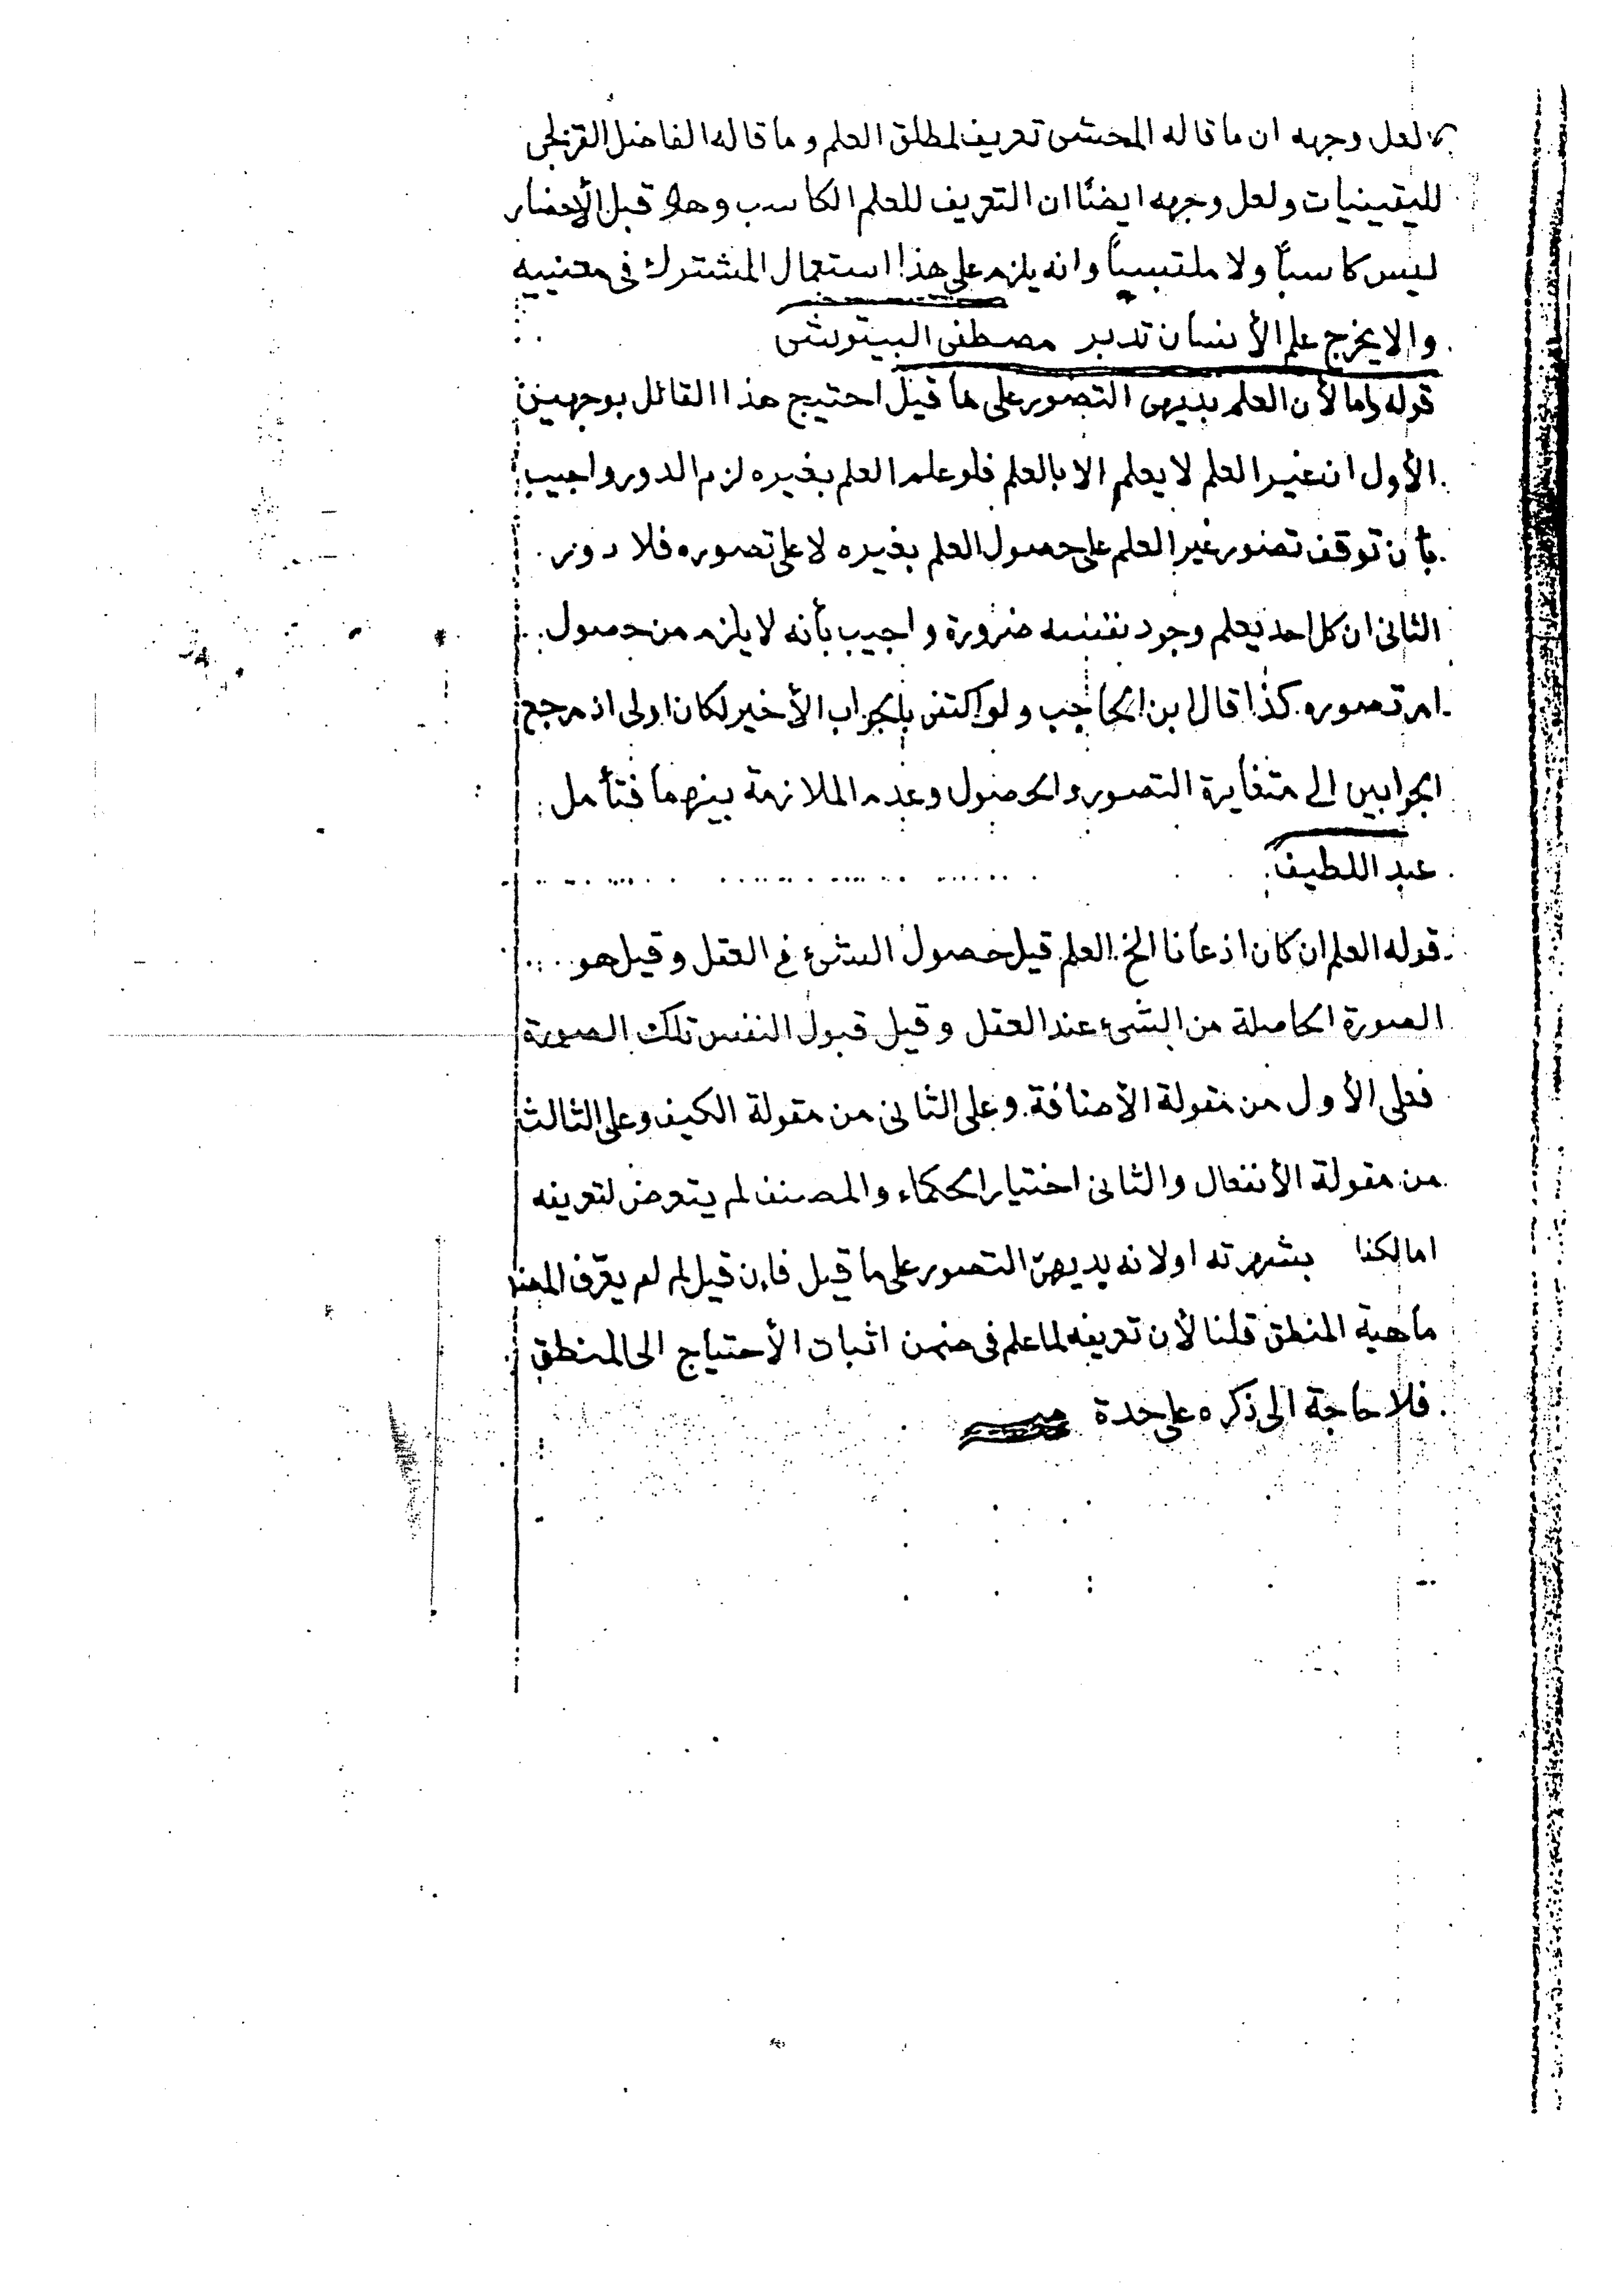 لعل وجهه ان ما قاله المحشى تعريف لمطلق العلم و ما قاله الفاضل القزلجى
لليقينيات و لعل وجهه ايضًا ان التعريف للعلم الكاسب و هو قبل الأحضار
ليس كاسبًا ولا ملتبسًا وانه يلزم على هذا استعمال المشترك فى معنييه
والا يخرج علم الأنسان تدبر مصطفى البيتوشى
قوله واما لأن العلم بديهى التصور على ما قيل احتيج هذا القائل بوجهين
الأول ان غير العلم لا يعلم الا بالعلم فلو علم العلم بغيره لزم الدور واجيب
بأن توقف تصور غير العلم على حصول العلم بغيره لا على تصوره فلا دور
الثانى ان كل احد يعلم وجود نفسه ضرورة و اجيب بأنه لا يلزم من حصول
امر تصوره كذا قال ابن الحاجب و لو اكتفى بالجواب الأخير لكان اولى اذ مرجع
الجوابين الى متغايرة التصور والحصول وعدم الملازمة بينهما فتأمل
عبد اللطيف
قوله العلم ان كان اذعانا الخ العلم قيل حصول الشئ فى العقل و قيل هو
الصورة الحاصلة من الشئ عند العقل و قيل قبول النفس تلك الصورة
فعلى الأول من مقولة الأضافة وعلى الثانى من مقولة الكيف وعلى الثالث
من مقولة الأنفعال والثانى اختيار الحكماء والمصنف لم يتعرض لتعريفه
اما بشهرته اولانه بديهى التصور على ما قيل فإن قيل لم لم يعرف
ماهية المنطق قلنا لأن تعريفه لما علم فى ضمن اثبات الأحتياج الى المنطق
فلا حاجة الى ذكره على حدة